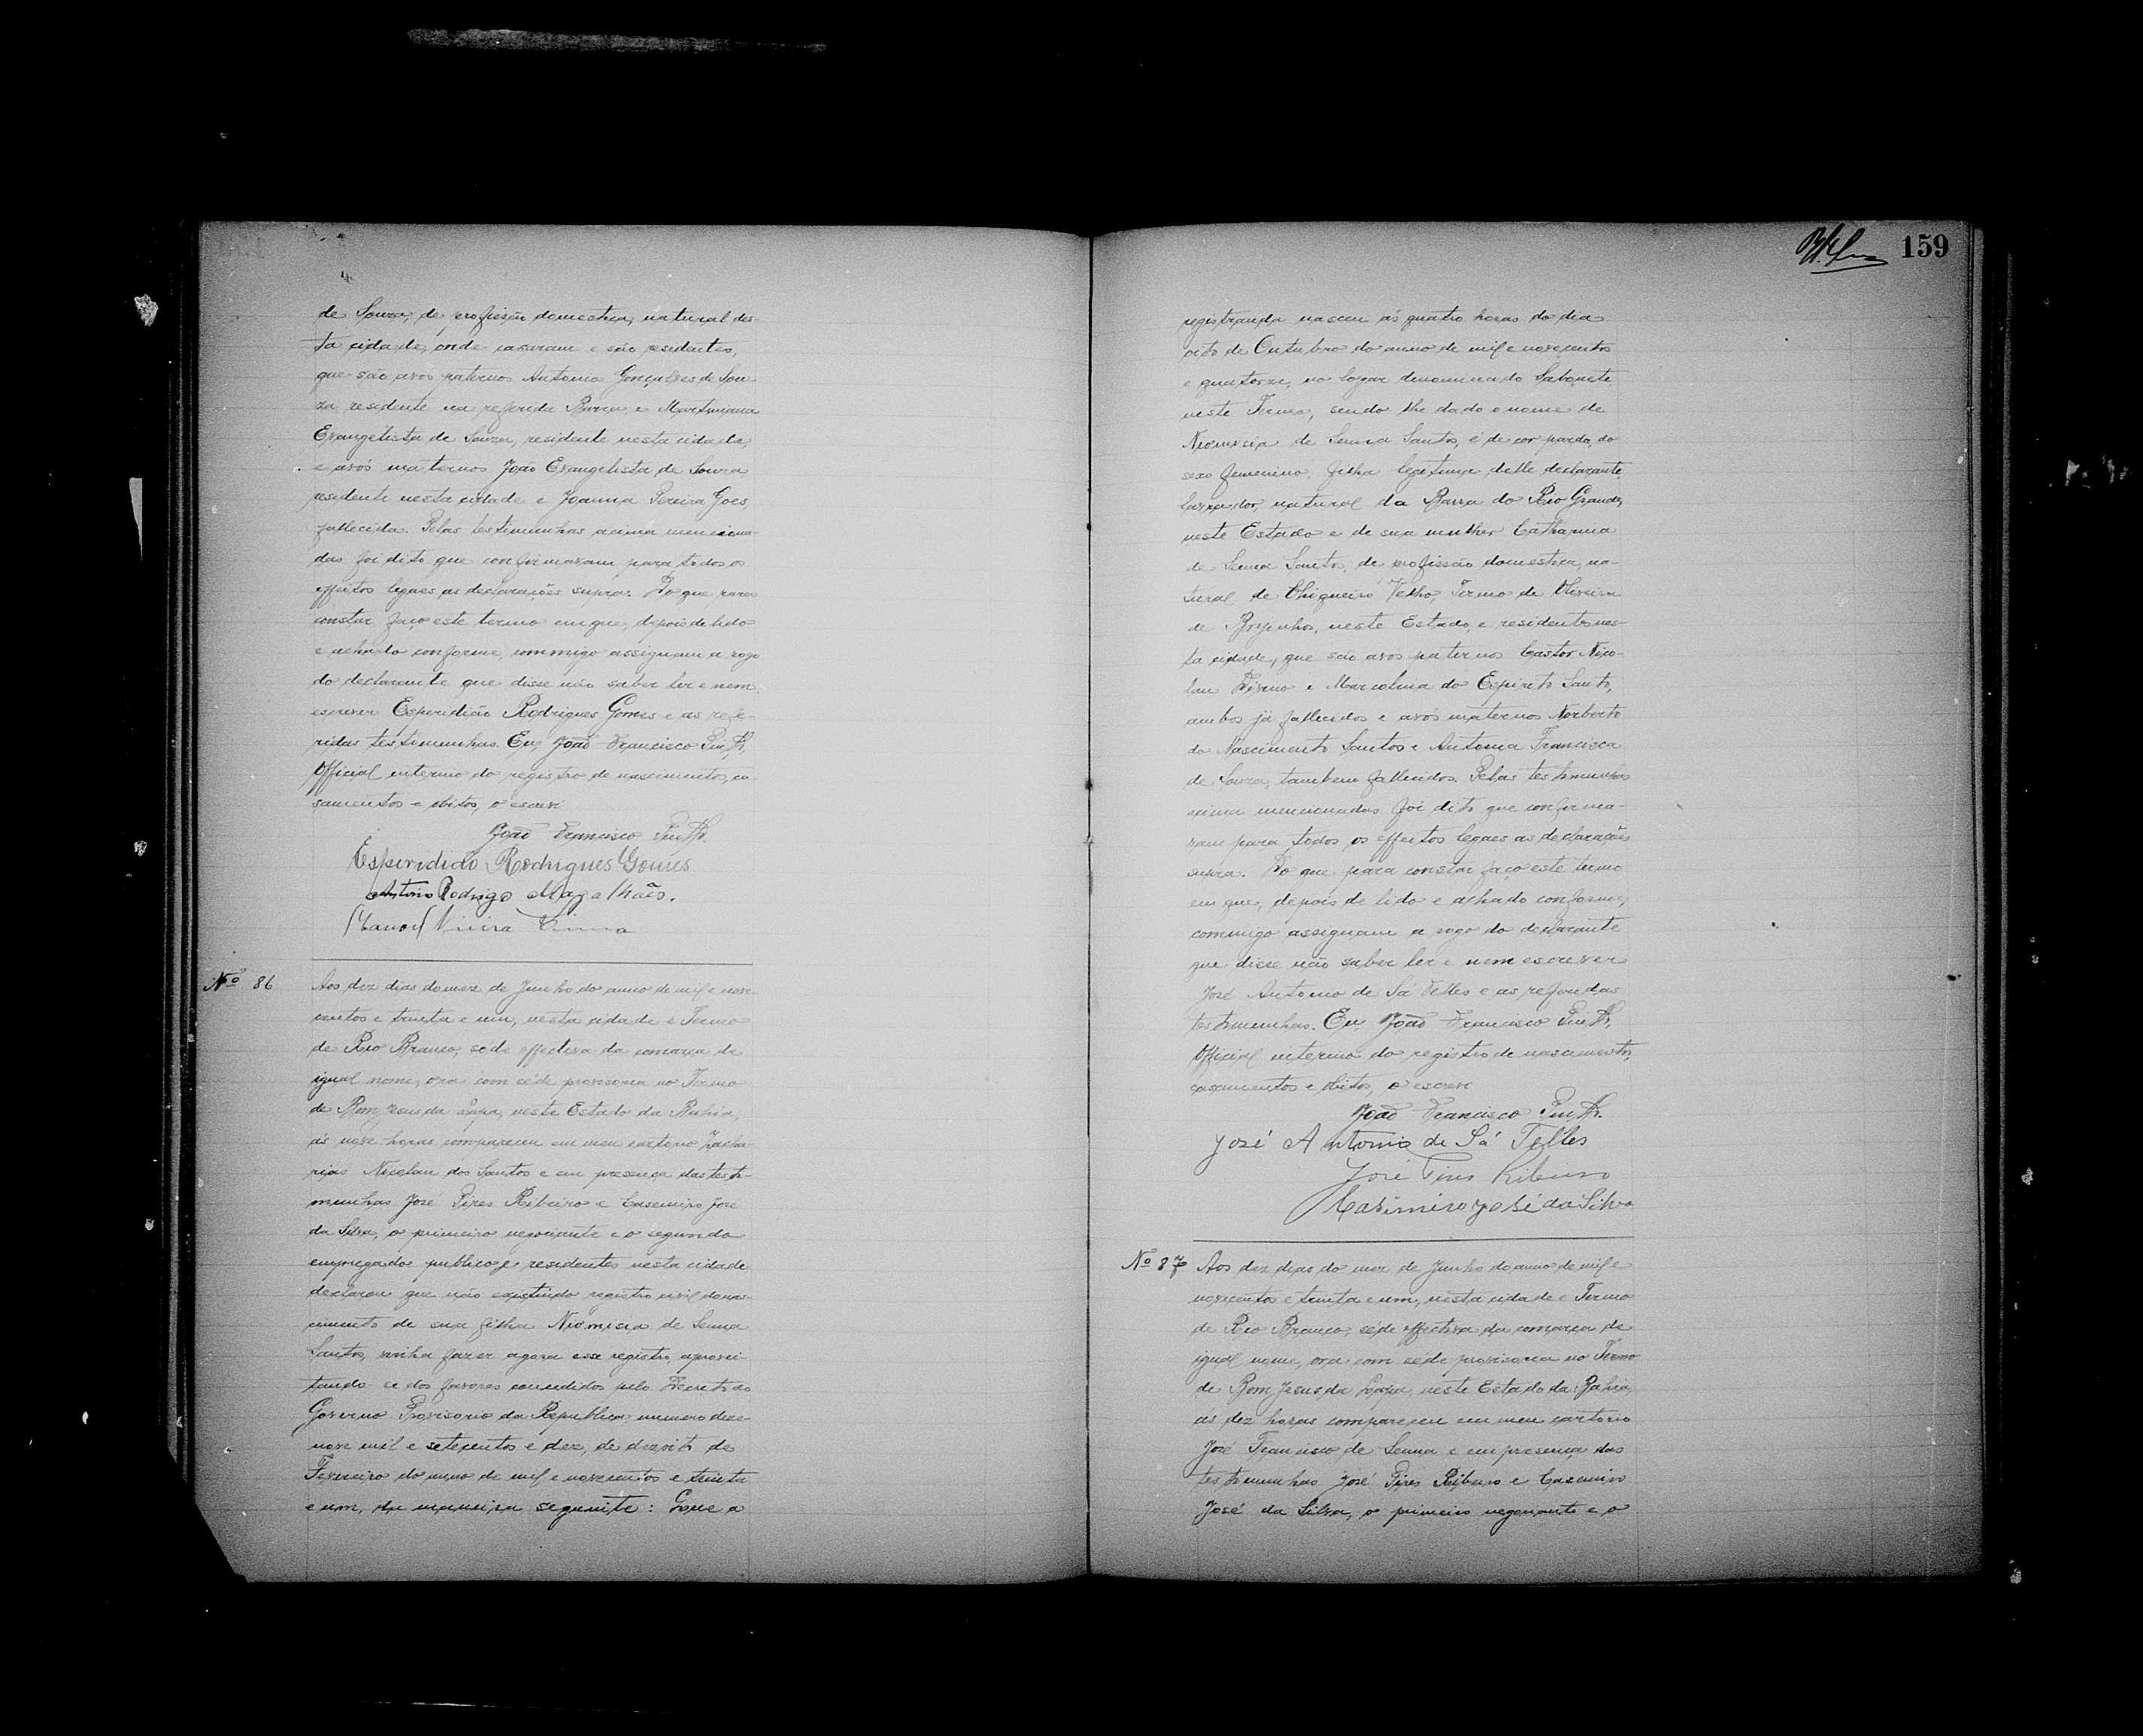 de Souza, de profissão domestica, natural des-
ta cidade, onde casaram e são residentes,
que são avos paternos Antonio Gonçalves de Sou-
za residente na referida Barra e Martiniana
Evangelista de Souza, residente nesta cidade,
e avós maternos João Evangelista de Souza
residente nesta cidade e Joanna Pereira Goes,
fallecida. Pelas testimunhas acima menciona-
das foi dito que confirmavam para todos os
effeitos legaes as declarações supra. Do que para
constar faço este termo em que, depois de lido
e achado conforme, commigo assignam a rogo
do declarante que disse não saber ler e nem
escrever Esperidião Rodrigues Gomes e as refe-
ridas testimunhas. Eu, João Francisco
Official interino do registro de nascimentos, ca-
samentos e obitos, o escrevi
João Francisco
Esperidião Rodrigues Gomes
Antonio Rodrigo Magalhães.
Manoel Vieira
Nº 86
Aos dez dias do mez de Junho do anno de mil e nove-
centos e trinta e um, nesta cidade e Termo
de Rio Branco, séde effectiva da comarca de
igual nome, ora com séde provisoria no Termo
de Bom Jesus da Lapa, neste Estado da Bahia,
ás nove horas compareceu em meu cartorio Zacha-
rias Nicolau dos Santos e em presença das testi-
munhas José Pires Ribeiro e Casemiro José
da Silva, o primeiro negociante e o segundo
empregado publico e residentes nesta cidade
declarou que não existindo registro civil do nas-
cimento de sua filha Niomisia de Senna
Santos, vinha fazer agora esse registro, aprovei-
tando-se dos favores concedidos pelo Decreto do
Governo Provisorio da Republica numero deze-
nove mil e setecentos e dez, de dezoito de
Fevereiro do anno de mil e novecentos e trinta
e um, da maneira seguinte: Que a
159
registranda nasceu ás quatro horas do dia
oito de Outubro do anno de mil e novecentos
e quatorze, no logar denominado Sabonete
neste Termo, sendo lhe dado o nome de
Niomisia de Senna Santos, é de cor parda, do
sexo femenino, filha legitima delle declarante,
lavrador, natural da Barra do Rio Grande,
neste Estado e de sua mulher Catharina
de Senna Santos, de profissão domestica, na-
tural de Chiqueiro Velho, Termo de Oliveira
de Brejinhos, neste Estado, e residentes nes-
ta cidade, que são avos paternos Castor Nico-
lau e Marcolina do Espirito Santo,
ambos já fallecidos e avós maternos Norberto
do Nascimento Santos e Antonia Francisca
de Souza, tambem fallecidos. Pelas testimunhas
acima mencionadas foi dito que confirma-
vam para todos os effeitos legaes as declarações
supra. Do que para constar faço este termo
em que, depois de lido e achado conforme,
commigo assignam a rogo do declarante
que disse não saber ler e nem escrever
José Antonio de Sá Telles e as referidas
testimunhas. Eu, João Francisco
Official interino do registro de nascimentos,
casamentos e obitos, o escrevi
João Francisco
José Antonio de Sá Telles
José Pires Ribeiro
Casimiro José da Silva
Nº 87
Aos dez dias do mez de Junho do anno de mil e
novecentos e trinta e um, nesta cidade e Termo
de Rio Branco, séde effectiva da comarca de
igual nome, ora com séde provisoria no Termo
de Bom Jesus da Lapa, neste Estado da Bahia,
ás dez horas compareceu em meu cartorio
José Francisco de Senna e em presença das
testimunhas José Pires Ribeiro e Casemiro
José da Silva, o primeiro negociante e o